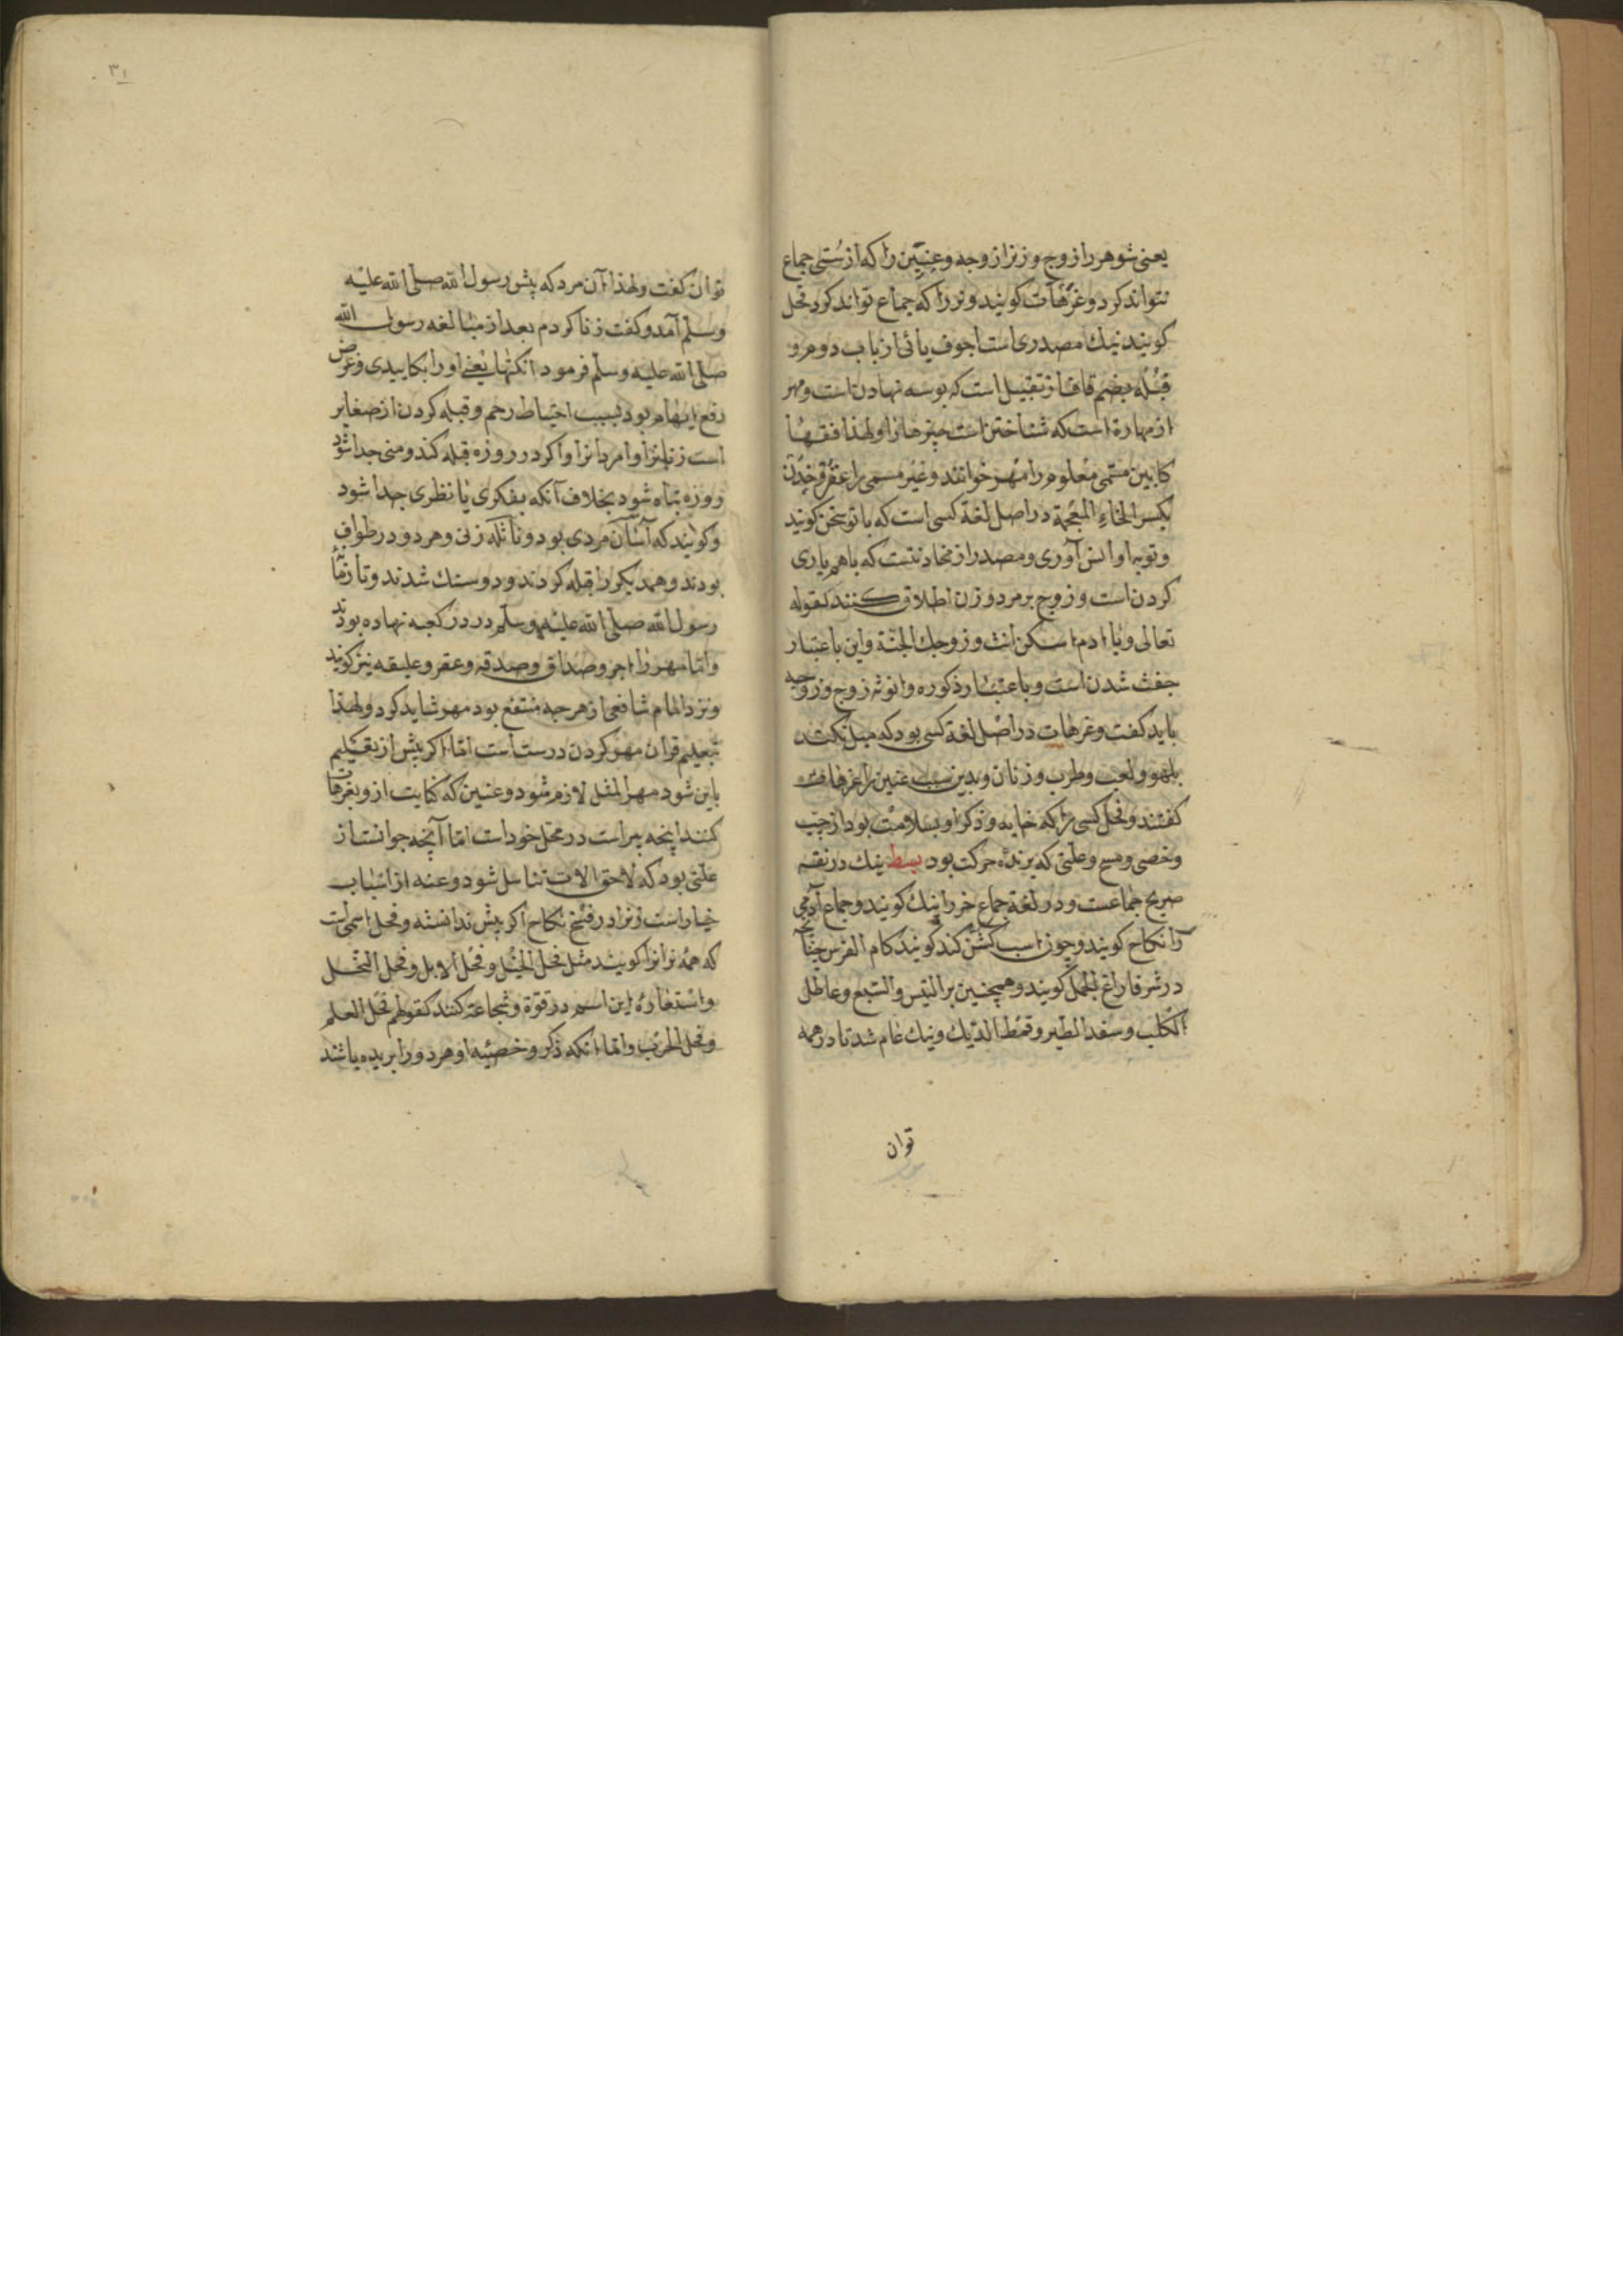 یعنی شوهر را زوج و زنرا زوجه و عِنّین را که از سُستی جماع
نتواند کرد و عَزْهات کویند و نر را که جماع تواند کرد فحل
کویند نیك مصدری است اجوف یائی از باب دوم و
قُبْله بضم قاف از تقبیل است که بوسه نهادن است و مهر
از مهارة است که شناختن است چیزها را و لهذا فقها
کابین مسمّی معلوم را مهر خوانند و غیر مسمی را عقر و خِدْن
بکسر الخاءِ المعجمة در اصل لغة کسی است که با تو سخن کوید
و تو با او انس آوری و مصدر از مخادنتست که باهم یاری
کردن است و زوج بر مرد و زن اطلاق کنند کقوله
تعالی ویا ادم اسکن انت و زوجك الجنّة و این باعتبار
جفت شدن است و باعتبار ذکوره و انوثه زوج و زوجه
باید کفت و عزهات در اصل لغة کسی بود که میل نکند
بلهو و لعب و طرب و زنان و بدین سبب عنین را عزهات
کفتند و فحل کسی را که خایه و ذکر او بسلامت بود از جب
و خصی و مسح و علتی که برنده حرکت بود بسط نیك در نفسه
صریح جماعست و در لغة جماع خر را نیك کویند و جماع آدمی
را نکاح کویند و چون اسب کشن کند کویند کام الفرس چنانچه
در شتر فاراغ الجمل کویند و همچنین بر التیس و السّبع و عاظل
الکلب و سفد الطیر و قمط الدّیك و نیك عام شد تا در همه
توان
۳۱
توان کفت و لهذا آن مرد که پیش رسول الله صلی الله علیه
وسلّم آمد و کفت زنا کردم بعد از مبالغه رسول الله
صلی الله علیه وسلّم فرمود انکتها یعنی اورا بکاییدی و غرض
رفع ابهام بود بسبب احتیاط رجم و قبله کردن از صغایر
است زنانرا و امردانرا و اکر در روزه قبله کند و منی جدا شود
روزه تباه شود بخلاف آنکه بفکری یا نظری جدا شود
و کویند که آساف مردی بود و نائله زنی و هر دو در طواف
بودند و همدیکر را قبله کردند و دو سنك شدند و تا زمان
رسول الله صلی الله علیه وسلّم در در کعبه نهاده بودند
و امّا مهر را اجر و صداق و صدقه و عقر و علیقه نیز کویند
و نزد امام شافعی از هرچه منتفع بود مهر شاید کرد و لهذا
بتعلیم قرآن مهر کردن درست است امّا اکر پیش از تعلیم
باین شود مهر المثل لازم شود و عنین که کنایت ازو بعزهات
کنند اینچه پیر است در محل خود است امّا آنچه جوانست از
علّتی بود که لاحق الات تناسل شود و عنه از اسباب
خیار است زنرا در فسخ نکاح اکر پیش ندانسته و فحل اسمی است
که همهٔ نرانرا کویند مثل فحل الخیل و فحل الابل و فحل النخل
و استعارهٔ این اسم در قوّة و شجاعة کنند کقولهم فحل العلم
و فحل الحرب و امّا انکه ذکر و خصیه او هر دو را بریده باشند